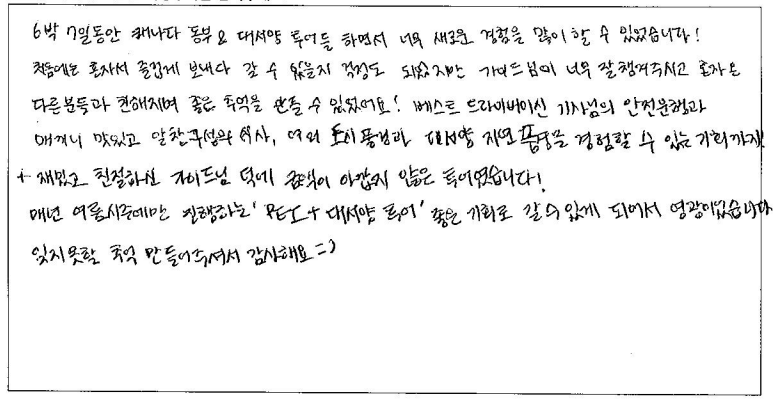 6박 7일동안 캐나다 동부 & 대서양 투어를 하면서 너무 새로운 경험을 많이 할 수 있었습니다!
처음에는 혼자서 즐겁게 보내다 갈 수 있을지 걱정도 되었지만 가이드님이 너무 잘챙겨주시고 혼자 온
다른분들과 친해지며 좋은 추억을 만들 수 있었어요! 베스트 드라이버이신 기사님의 안전운행과
매끼니 맛있고 알찬구성의 식사, 여러 도시풍경과 대서양 자연 풍경을 경험할 수 있는 기회까지!
+ 재밌고 친절하신 가이드님 덕에 금액이 아깝지 않은 투어였습니다!
매년 여름시즌에만 진행하는 'PEI + 대서양 투어' 좋은 기회로 갈 수 있게 되어서 영광이었습니다
잊지못할 추억 만들어주셔서 감사해요 =)